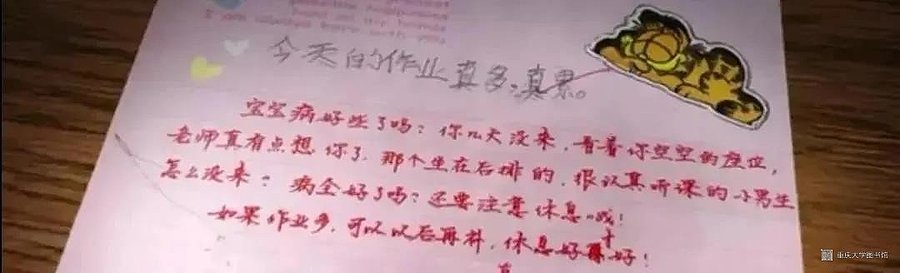 今天的作业真多,真累。
宝宝病好些了吗?你几天没来,看着你空空的座位,
老师真有点想你了,那个坐在后排的,很认真听课的小男生
怎么没来?病全好了吗?还要注意休息哦!
如果作业多,可以以后再补,休息好才好!
重庆大学图书馆